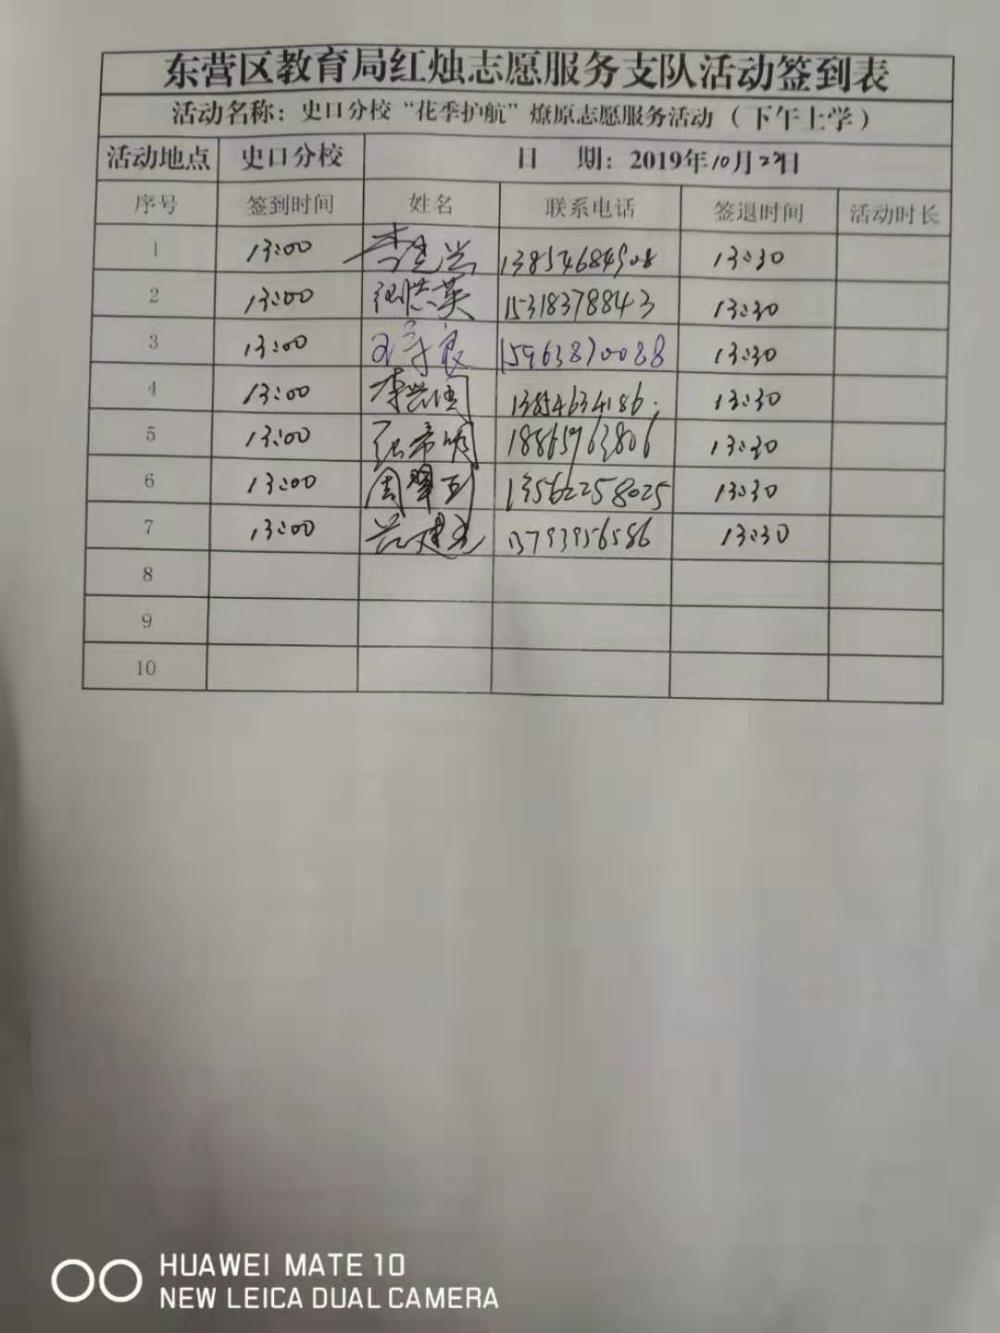 东营区教育局红烛志愿服务支队活动签到表
活动名称：史口分校“花季护航”燎原志愿服务活动（下午上学）
活动地点 史口分校 日 期：2019年10月 日
序号 签到时间 姓名 联系电话 签退时间 活动时长
1 13:00 13854684908 13:30
2 13:00 15318378843 13:30
3 13:00 15963870088 13:30
4 13:00 13854634186 13:30
5 13:00 张希明 18865963806 13:30
6 13:00 13562258025 13:30
7 13:00 13793956586 13:30
8
9
10
HUAWEI MATE 10
NEW LEICA DUAL CAMERA